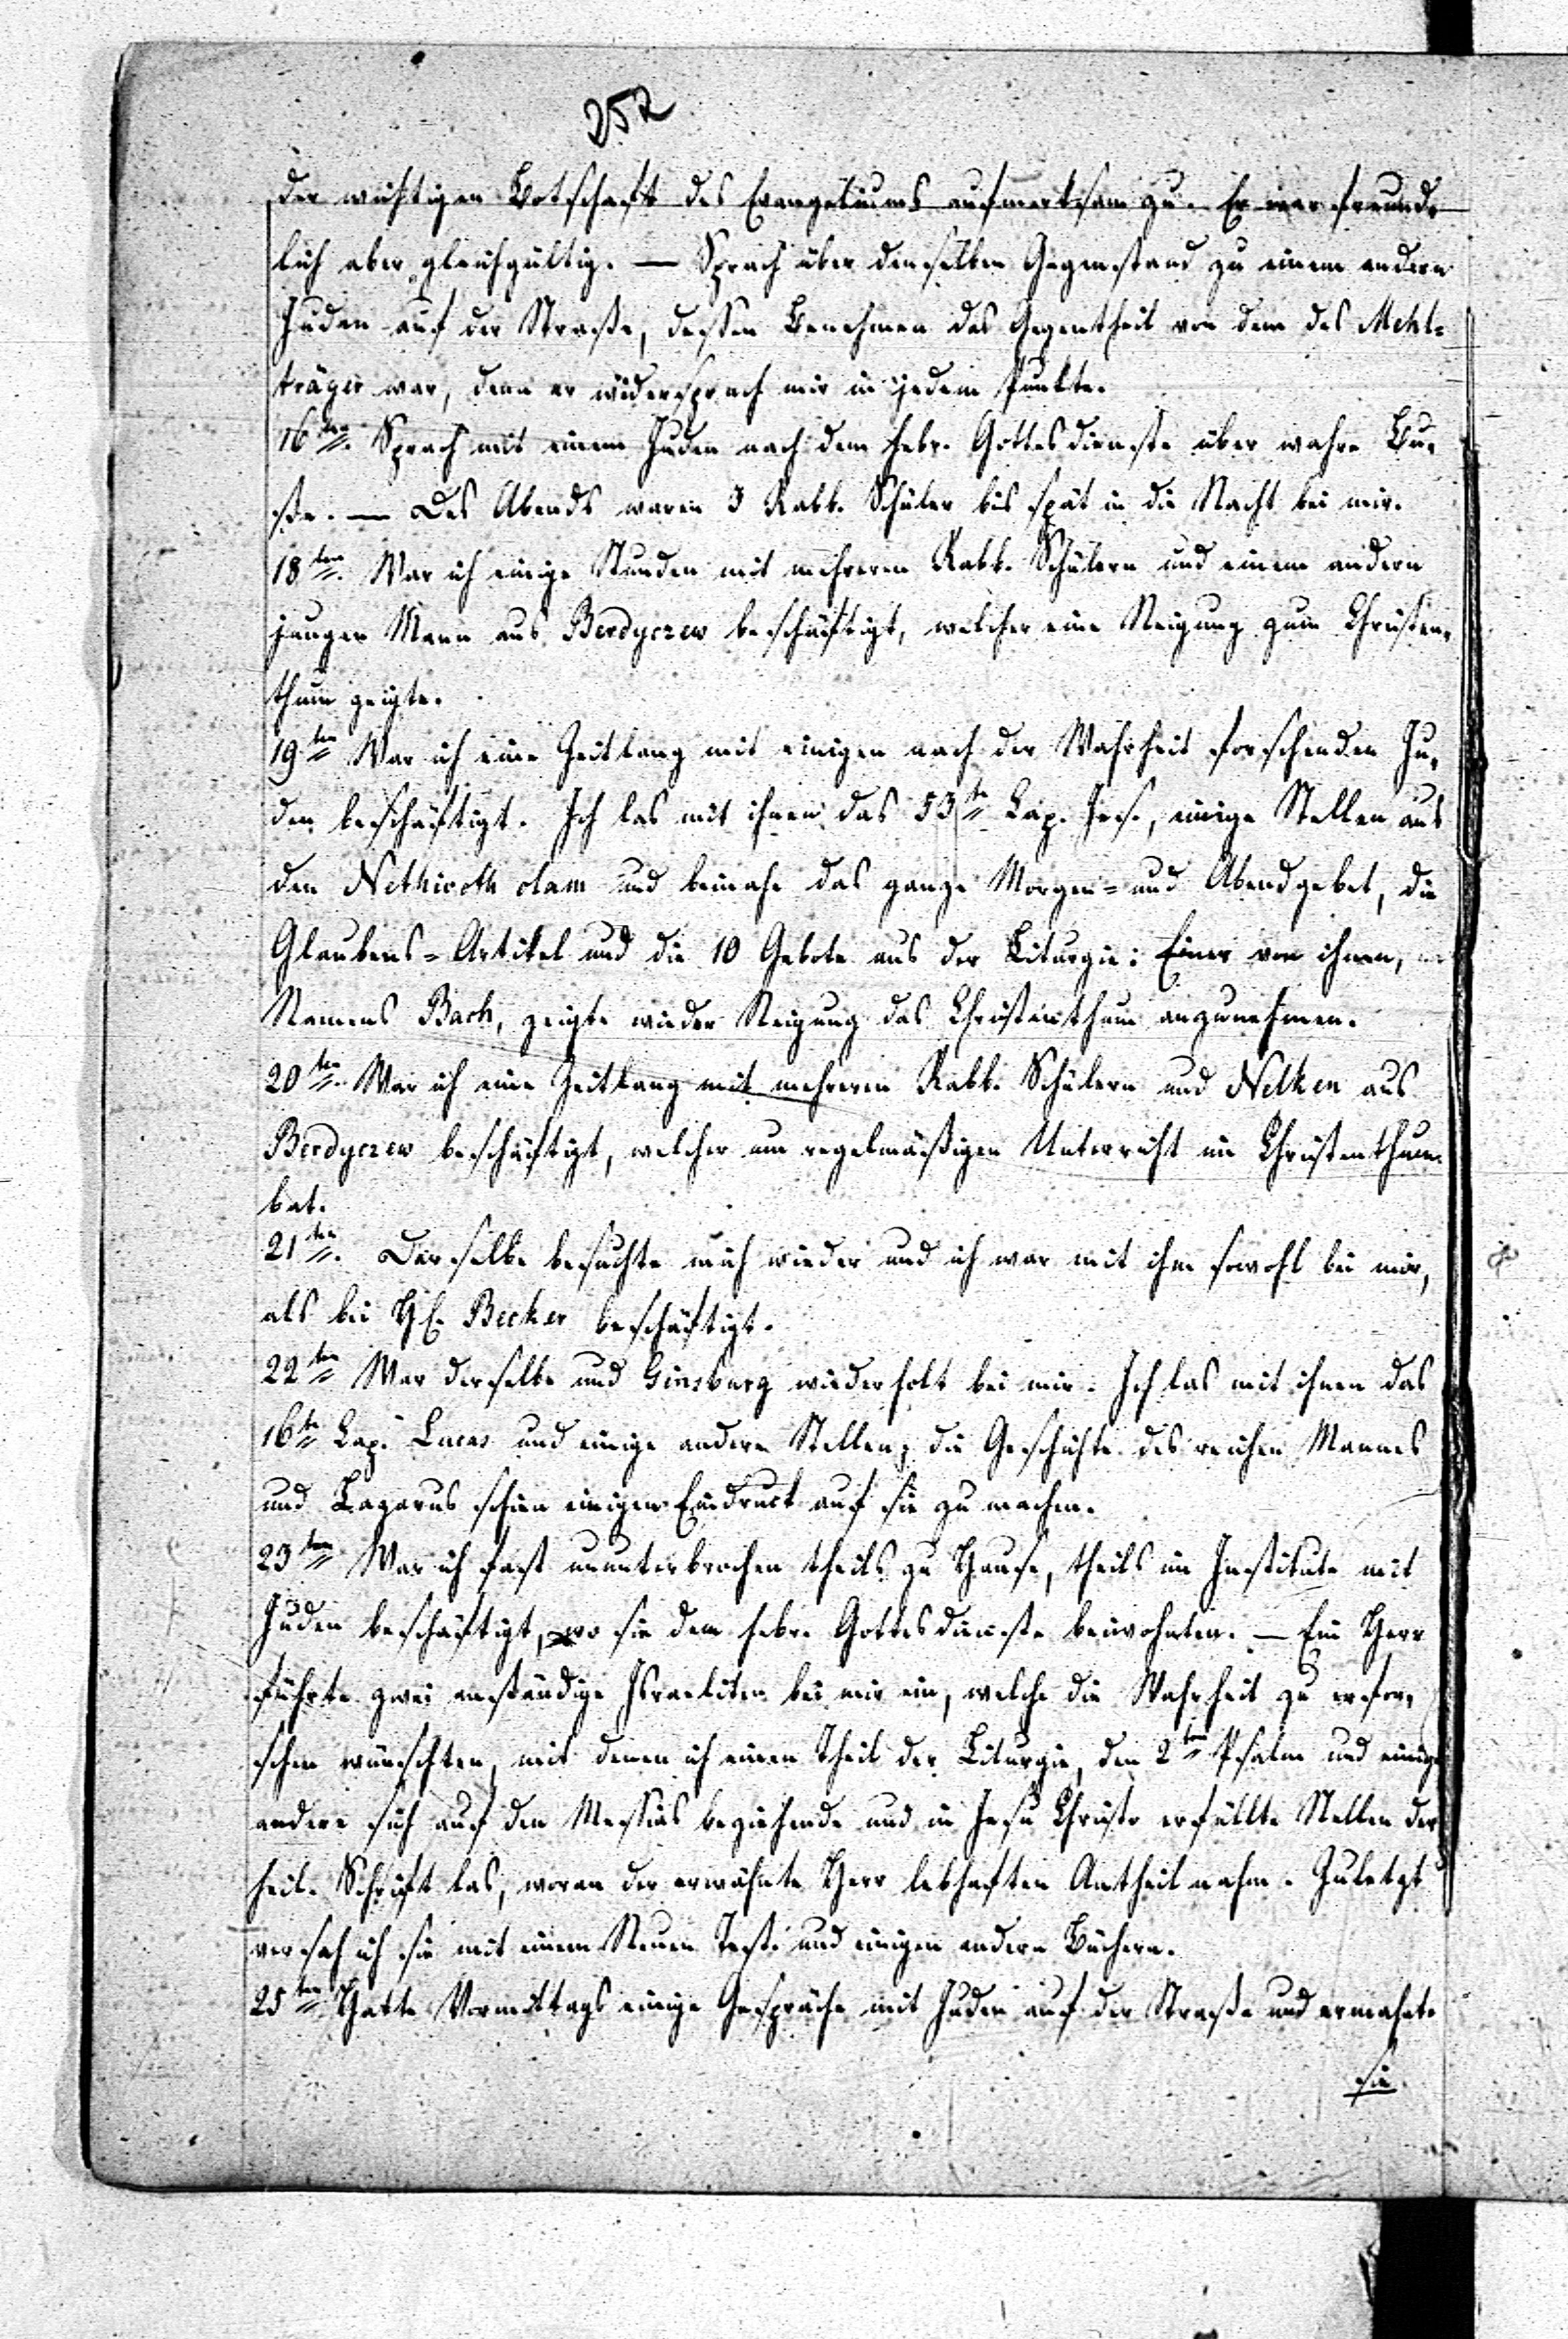 252
der wichtigen Botschaft des Evangeliums aufmerksam zu. Er war freund-
lich aber gleichgültig. — Sprach über denselben Gegenstand zu einem andern
Juden auf der Straße, dessen Benehmen das Gegentheil von dem des Mehl-
träger war, denn er widersprach mir in jedem Punkte.
16ten. Sprach mit einem Juden nach dem hebr. Gottesdienste über wahre Bu-
ße. — Des Abends waren 3 Rabb. Schüler bis spät in die Nacht bei mir.
18ten. War ich einige Stunden mit mehreren Rabb. Schülern und einem andern
jungen Mann aus Berdyczew beschäftigt, welcher eine Neigung zum Christen-
thum zeigte.
19ten War ich eine Zeitlang mit einigen nach der Wahrheit forschenden Ju-
den beschäftigt. Ich las mit ihnen das 53te Cap. Jes., einige Stellen aus
den Nethivoth olam und beinahe das ganze Morgen- und Abendgebet, die
Glaubens-Artikel und die 10 Gebote aus der Liturgie: Einer von ihnen,
Namens Bach, zeigte wieder Neigung das Christenthum anzunehmen.
20ten. War ich eine Zeitlang mit mehreren Rabb. Schülern und Nelken aus
Berdyczew beschäftigt, welcher um regelmäßigen Unterricht im Christenthum
bat.
21ten. Derselbe besuchte mich wieder und ich war mit ihm sowohl bei mir,
als bei H. Becker beschäftigt.
22ten War derselbe und Ginsburg wiederholt bei mir. Ich las mit ihnen das
16te Cap. Lucas und einige andere Stellen; die Geschichte des reichen Mannes
und Lazarus schien einigen Eindruck auf sie zu machen.
23ten War ich fast ununterbrochen theils zu Hause, theils im Institute mit
Juden beschäftigt, wo sie dem hebr. Gottesdienste beiwohnten. — Ein Herr
führte zwei anständige Israeliten bei mir ein, welche die Wahrheit zu erfor-
schen wünschten, mit denen ich einen Theil der Liturgie, den 2ten Psalm und einige
andere sich auf den Messias beziehende und in Jesu Christo erfüllte Stellen der
heil. Schrift las, woran der erwähnte Herr lebhaften Antheil nahm. Zuletzt
versah ich sie mit einem Neuen Test. und einigen andern Büchern.
25ten Hatte Vormittags einige Gespräche mit Juden auf der Straße und ermahnte
sie